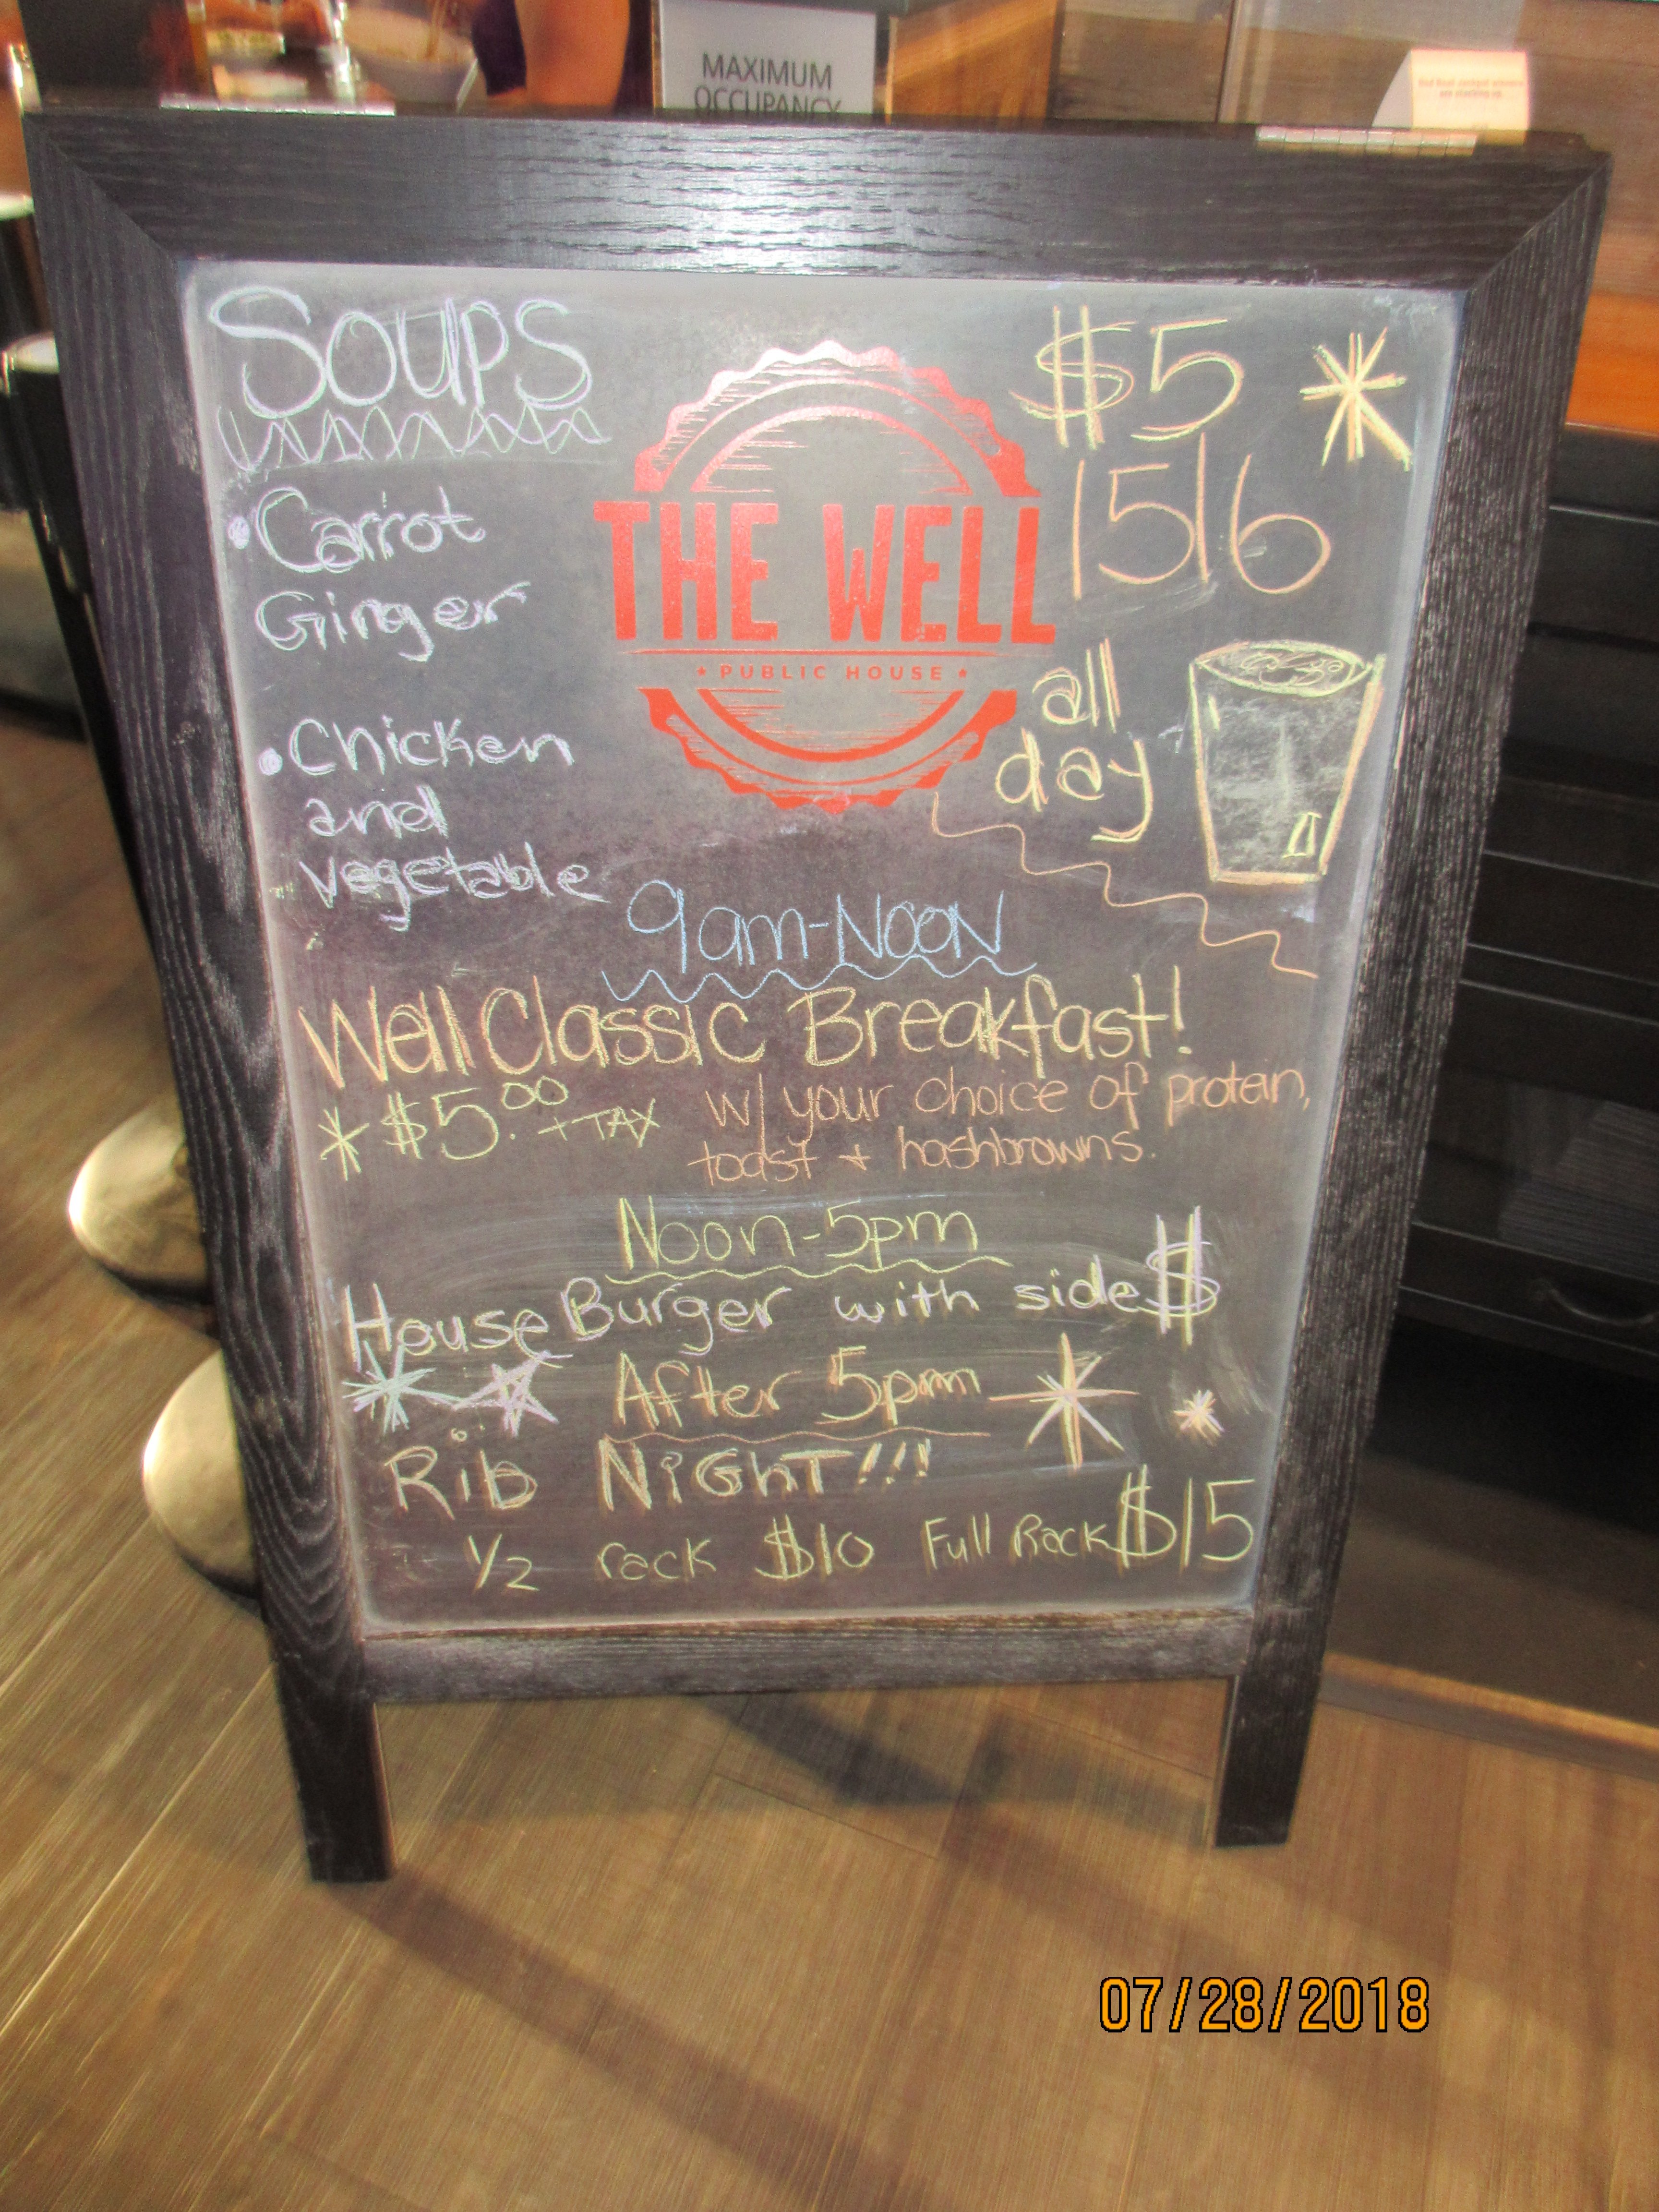 MAXIMUM
OCCUPANCY
SOUPS
• Carrot
Ginger
• Chicken
and
vegetable
THE WELL
★ PUBLIC HOUSE ★
$5 *
1516
all
day
9am-Noon
Well Classic Breakfast!
* $5.00 + TAX w/ your choice of protein,
toast + hashbrowns.
Noon-5pm
House Burger with side $
After 5pm
Rib NiGhT!!!
1/2 rack $10 Full Rack $15
07/28/2018